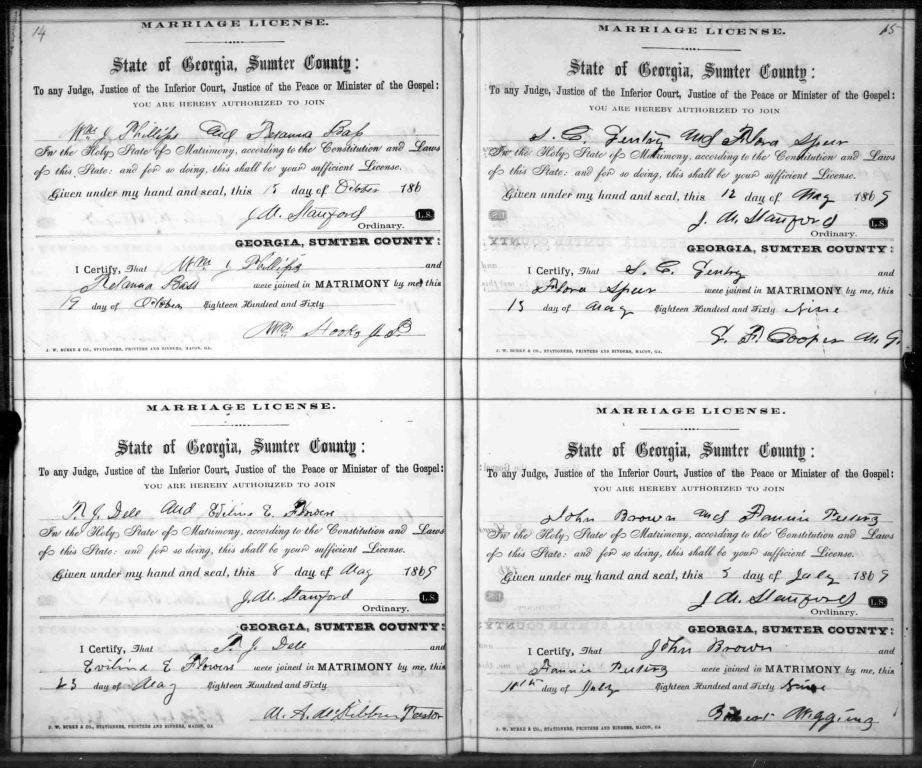 14
MARRIAGE LICENSE.
State of Georgia, Sumter County:
To any Judge, Justice of the Inferior Court, Justice of the Peace or Minister of the Gospel:
YOU ARE HEREBY AUTHORIZED TO JOIN
Wm J Phillips and
In the Holy State of Matrimony, according to the Constitution and Laws
of this State: and for so doing, this shall be your sufficient License.
Given under my hand and seal, this 15 day of 186
J. M. Stanford L.S.
Ordinary.
GEORGIA, SUMTER COUNTY:
I Certify, That Wm J Phillips and
were joined in MATRIMONY by me, this
19 day of October Eighteen Hundred and Sixty
Wm Hooks J.P.
J. W. BURKE & CO., STATIONERS, PRINTERS AND BINDERS, MACON, GA.
MARRIAGE LICENSE.
State of Georgia, Sumter County:
To any Judge, Justice of the Inferior Court, Justice of the Peace or Minister of the Gospel:
YOU ARE HEREBY AUTHORIZED TO JOIN
T. J. Dell and E. Flowers
In the Holy State of Matrimony, according to the Constitution and Laws
of this State: and for so doing, this shall be your sufficient License.
Given under my hand and seal, this 8 day of May 1869
J. M. Stanford L.S.
Ordinary.
GEORGIA, SUMTER COUNTY:
I Certify, That T. J. Dell and
Evilina E Flowers were joined in MATRIMONY by me, this
23 day of May Eighteen Hundred and Sixty
M. A. McKibben Pastor
J. W. BURKE & CO., STATIONERS, PRINTERS AND BINDERS, MACON, GA
15
MARRIAGE LICENSE.
State of Georgia, Sumter County:
To any Judge, Justice of the Inferior Court, Justice of the Peace or Minister of the Gospel:
YOU ARE HEREBY AUTHORIZED TO JOIN
S. C. Gentry and Flora Speer
In the Holy State of Matrimony, according to the Constitution and Laws
of this State: and for so doing, this shall be your sufficient License.
Given under my hand and seal, this 12 day of May 1869
J. M. Stanford L.S.
Ordinary.
GEORGIA, SUMTER COUNTY:
I Certify, That S. C. Gentry and
Flora Speer were joined in MATRIMONY by me, this
13 day of May Eighteen Hundred and Sixty Nine
F. Cooper M. G.
J. W. BURKE & CO., STATIONERS, PRINTERS AND BINDERS, MACON, GA.
MARRIAGE LICENSE.
State of Georgia, Sumter County:
To any Judge, Justice of the Inferior Court, Justice of the Peace or Minister of the Gospel:
YOU ARE HEREBY AUTHORIZED TO JOIN
John Brown and Fannie
In the Holy State of Matrimony, according to the Constitution and Laws
of this State: and for so doing, this shall be your sufficient License.
Given under my hand and seal, this 5 day of July 1869
J. M. Stanford L.S.
Ordinary.
GEORGIA, SUMTER COUNTY:
I Certify, That John Brown and
Fannie were joined in MATRIMONY by me, this
day of July Eighteen Hundred and Sixty Nine
Robert Wiggins
J. W. BURKE & CO., STATIONERS, PRINTERS AND BINDERS, MACON, GA.